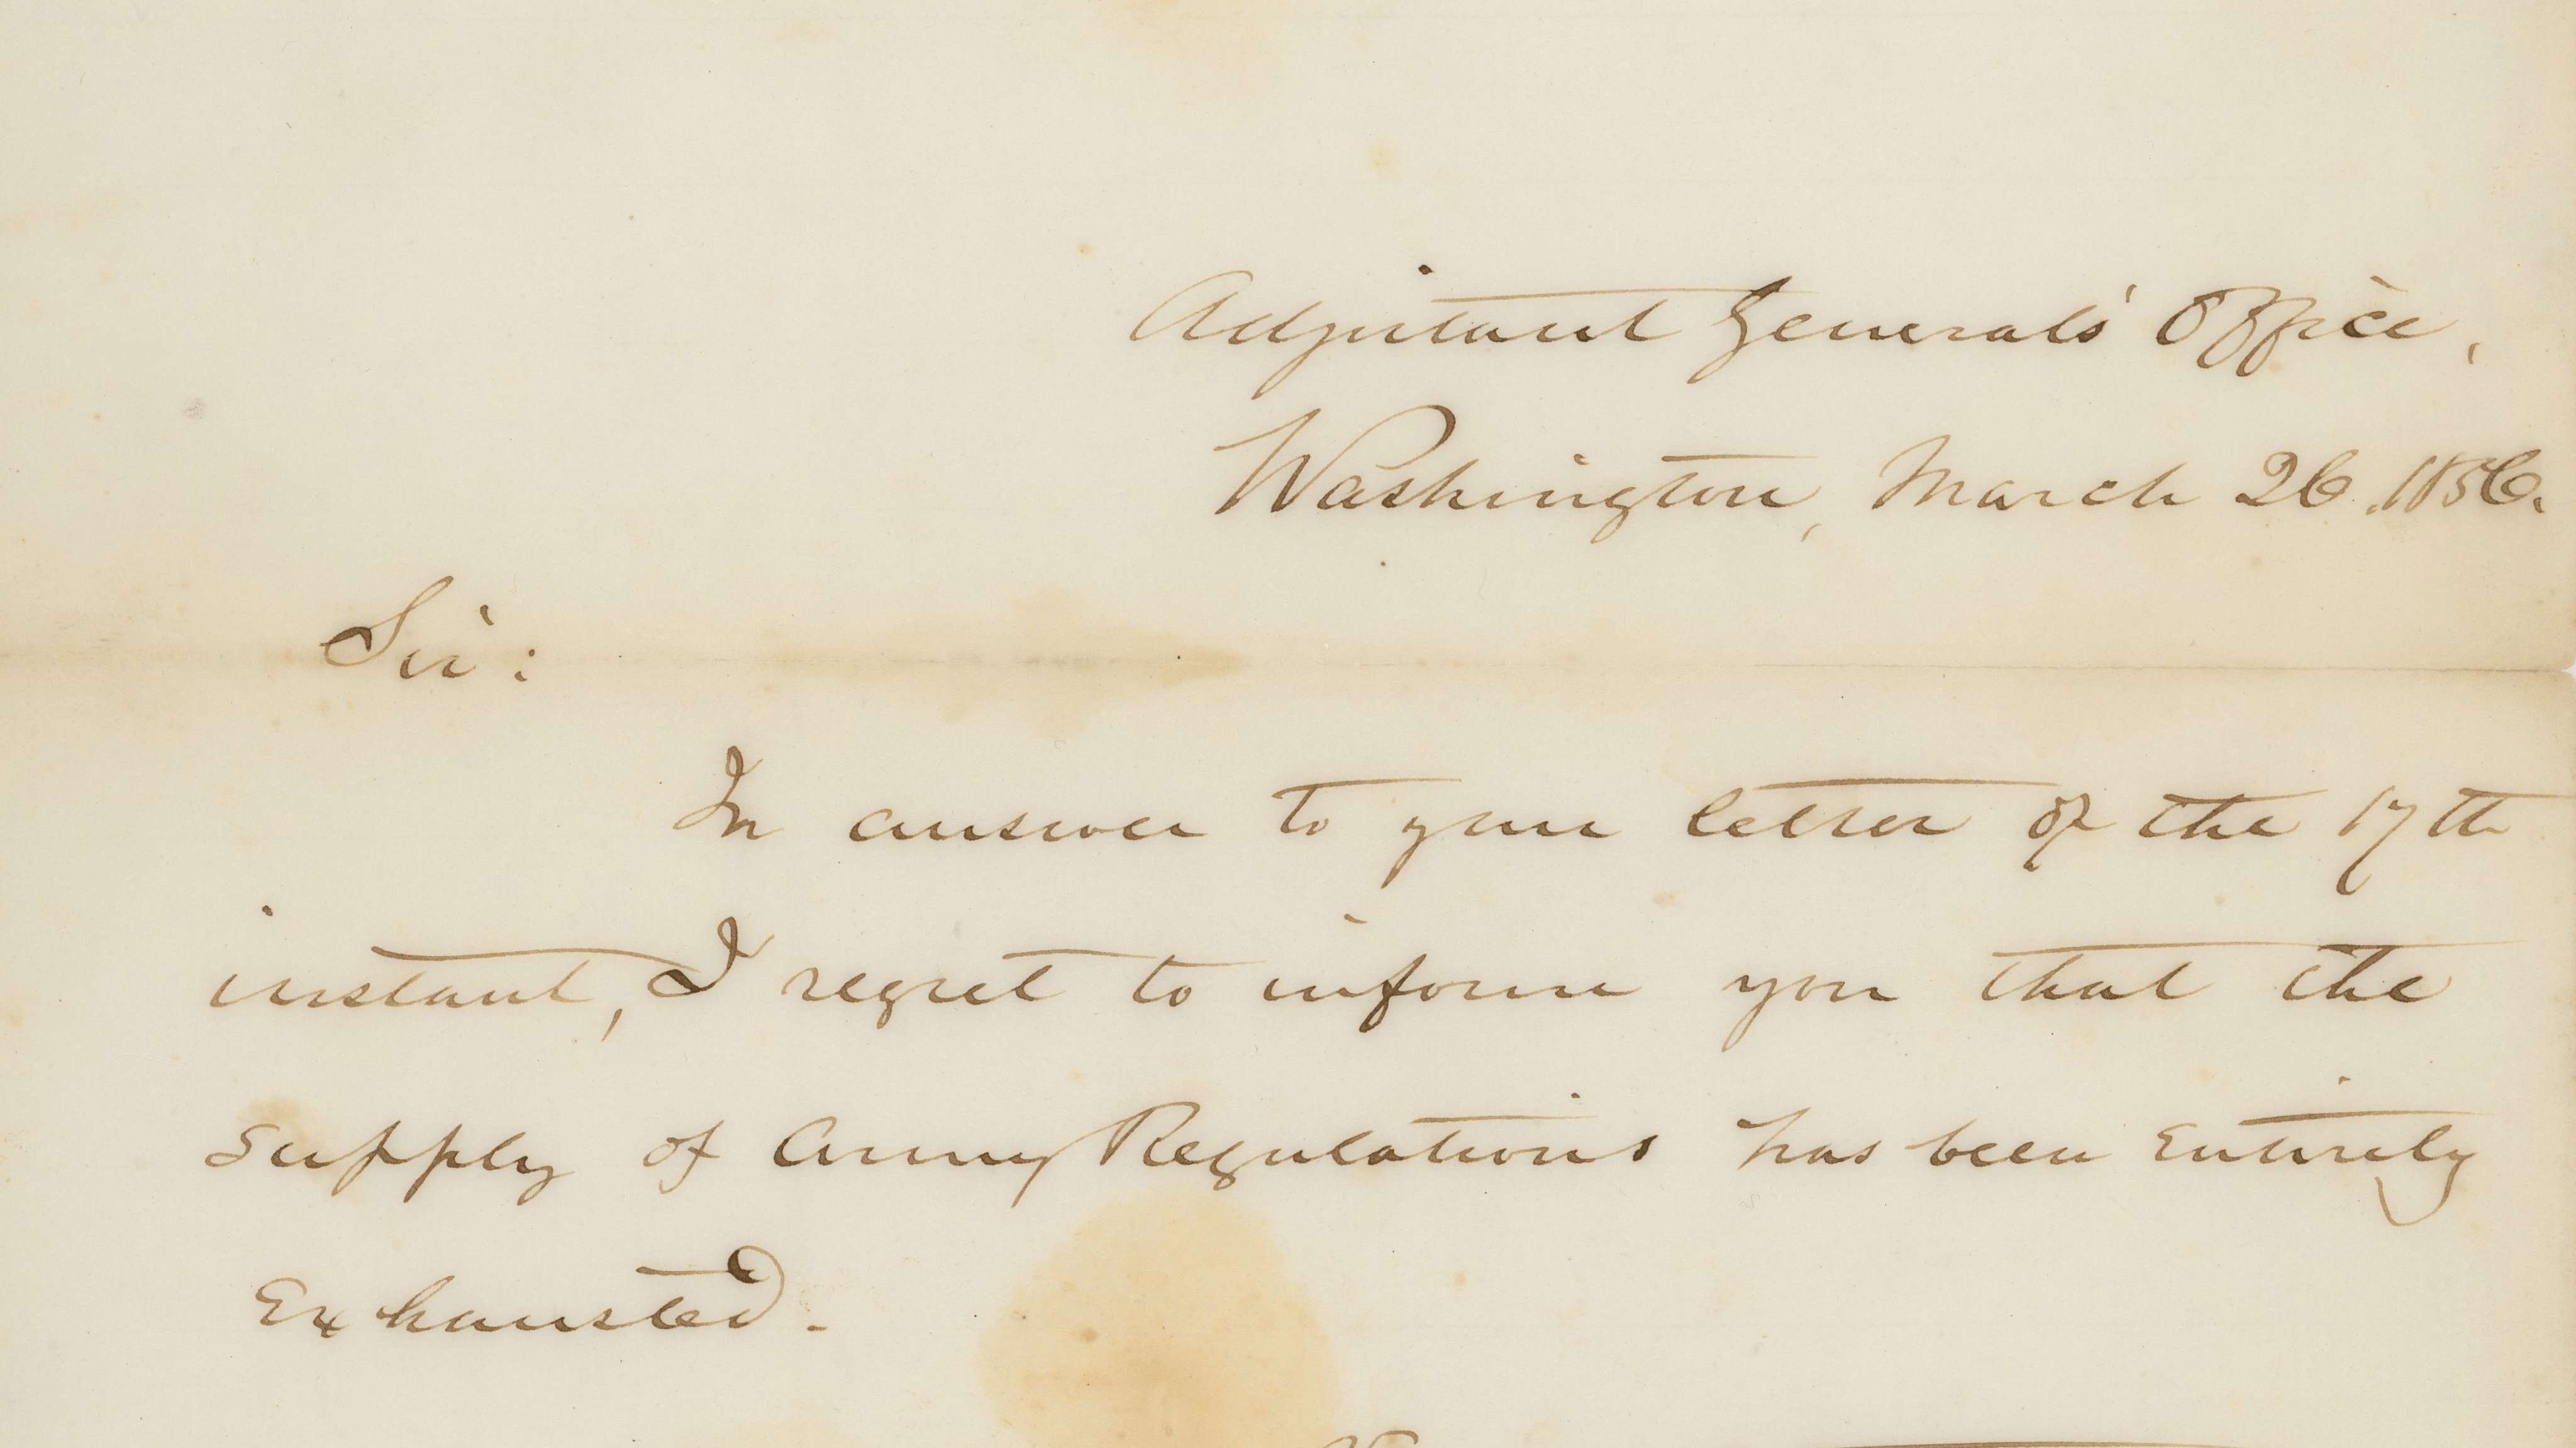 Adjutant General's Office,
Washington, March 26. 1856.
Sir:
In answer to your letter of the 17th
instant, I regret to inform you that the
supply of Army Regulations has been Entirely
Exhausted.